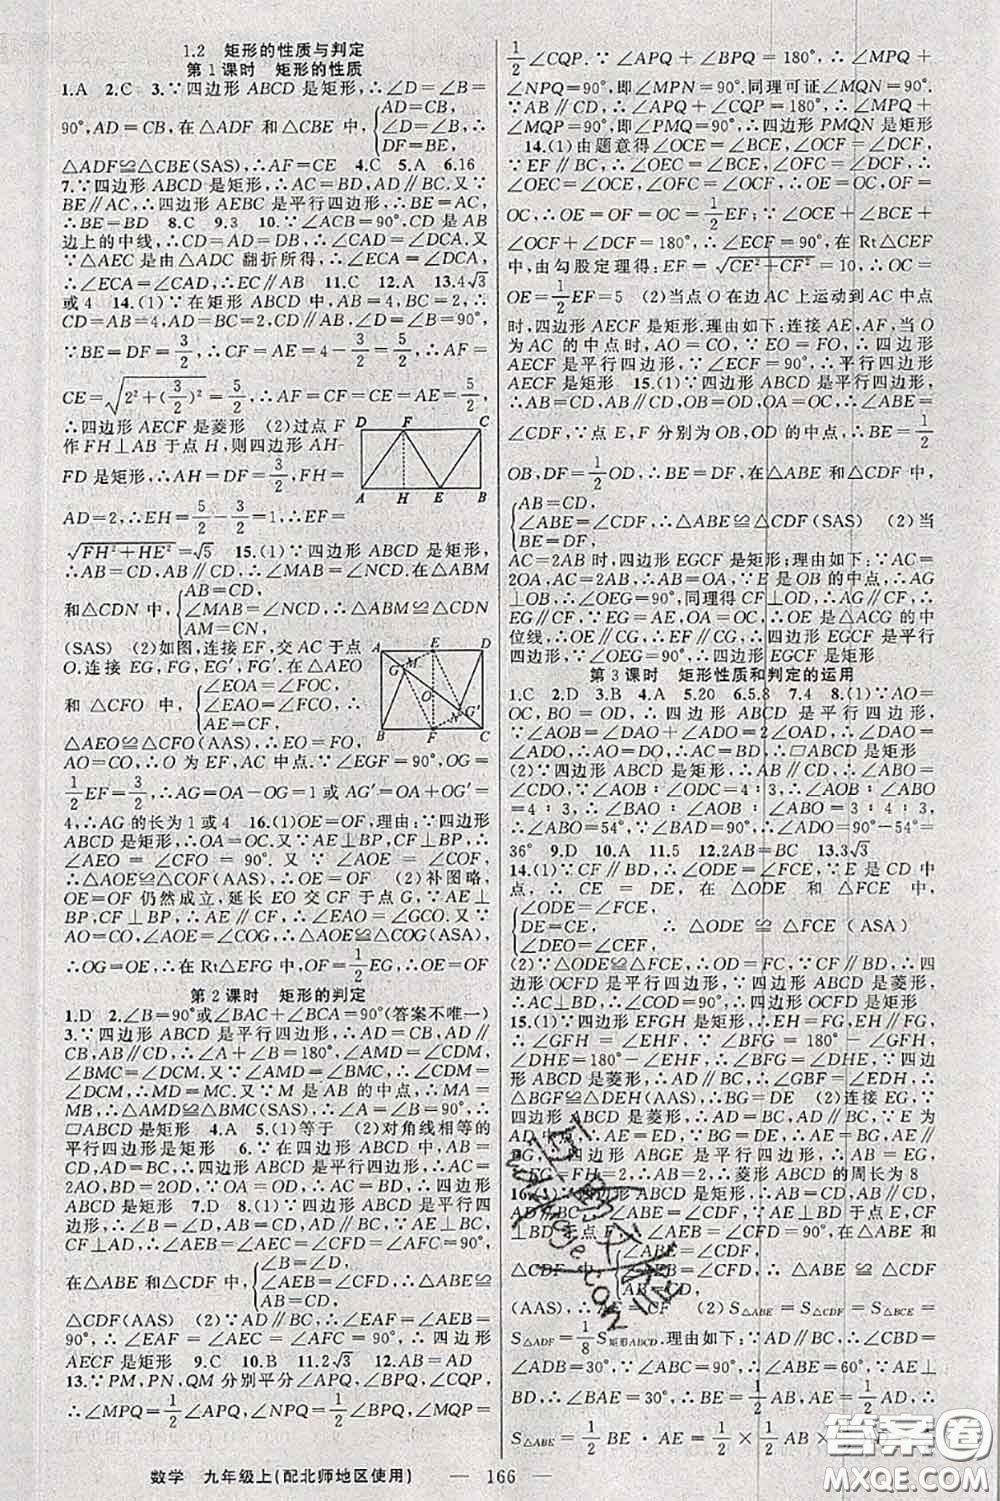 1.2 矩形的性质与判定
第1课时 矩形的性质
1.A 2.C 3.∵四边形ABCD是矩形,∴∠D=∠B=
90°,AD=CB,在△ADF和△CBE中,{AD=CB, ∠D=∠B, DF=BE, ∴
△ADF≌△CBE(SAS),∴AF=CE 4.C 5.A 6.16
7.∵四边形ABCD是矩形,∴AC=BD,AD∥BC.又∵
BE∥AC,∴四边形AEBC是平行四边形,∴BE=AC,
∴BE=BD 8.C 9.3 10.∵∠ACB=90°,CD是AB
边上的中线,∴CD=AD=DB,∴∠CAD=∠DCA.又
∵△AEC是由△ADC翻折所得,∴∠ECA=∠DCA,
∴∠ECA=∠CAD,∴EC∥AB 11.C 12.A 13.4√3
或4 14.(1)∵在矩形ABCD中,AB=4,BC=2,∴
CD=AB=4,AD=BC=2,CD∥AB,∠D=∠B=90°,
∵BE=DF=3/2,∴CF=AE=4-3/2=5/2,∴AF=
CE=√(2²+(3/2)²)=5/2,∴AF=CF=CE=AE=5/2,
∴四边形AECF是菱形 (2)过点F
作FH⊥AB于点H,则四边形AH-
FD是矩形,∴AH=DF=3/2,FH=
AD=2,∴EH=5/2-3/2=1,∴EF=
√(FH²+HE²)=√5 15.(1)∵四边形ABCD是矩形,
∴AB=CD,AB∥CD,∴∠MAB=∠NCD.在△ABM
和△CDN中,{AB=CD, ∠MAB=∠NCD, AM=CN, ∴△ABM≌△CDN
(SAS) (2)如图,连接EF,交AC于点
O,连接EG,FG,EG′,FG′.在△AEO
和△CFO中,{∠EOA=∠FOC, ∠EAO=∠FCO, AE=CF, ∴
△AEO≌△CFO(AAS),∴EO=FO,
AO=CO,∴O为EF,AC中点.∵∠EGF=90°,OG=
1/2EF=3/2,∴AG=OA-OG=1或AG′=OA+OG′=
4,∴AG的长为1或4 16.(1)OE=OF,理由:∵四边形
ABCD是矩形,∴OA=OC.又∵AE⊥BP,CF⊥BP,∴
∠AEO=∠CFO=90°.又∵∠AOE=∠COF,∴
△AOE≌△COF(AAS),∴OE=OF (2)补图略,
OE=OF仍然成立,延长EO交CF于点G,∵AE⊥
BP,CF⊥BP,∴AE∥CF,∴∠EAO=∠GCO.又∵
OA=OC,∠AOE=∠COG,∴△AOE≌△COG(ASA),
∴OG=OE,∴在Rt△EFG中,OF=1/2EG,∴OE=OF
第2课时 矩形的判定
1.D 2.∠B=90°或∠BAC+∠BCA=90°(答案不唯一)
3.∵四边形ABCD是平行四边形,∴AD=CB,AD∥
CB,∴∠A+∠B=180°,∠AMD=∠CDM,
∠BMC=∠MCD.又∵∠AMD=∠BMC,∴∠CDM=
∠MCD,∴MD=MC.又∵M是AB的中点,∴MA=
MB,∴△AMD≌△BMC(SAS),∴∠A=∠B=90°,∴
▱ABCD是矩形 4.A 5.(1)等于 (2)对角线相等的
平行四边形是矩形 6.∵在四边形ABCD中,AB=CD,
AD=BC,∴四边形ABCD是平行四边形,∴AC=
2AO,BD=2OD.∵OA=OD,∴AC=BD,∴四边形
ABCD是矩形 7.D 8.(1)∵四边形ABCD是平行四
边形,∴∠B=∠D,AB=CD,AD∥BC,∵AE⊥BC,
CF⊥AD,∴∠AEB=∠AEC=∠CFD=∠AFC=90°,
在△ABE和△CDF中,{∠B=∠D, ∠AEB=∠CFD, AB=CD, ∴△ABE≌
△CDF(AAS) (2)∵AD∥BC,∴∠EAF=∠AEB=
90°,∴∠EAF=∠AEC=∠AFC=90°,∴四边形
AECF是矩形 9.C 10.B 11.2√3 12.AB=AD
13.∵PM,PN,QM分别平分∠APQ,∠BPQ,∠CQP,
∴∠MPQ=1/2∠APQ,∠NPQ=1/2∠BPQ,∠MQP=
1/2∠CQP.∵∠APQ+∠BPQ=180°,∴∠MPQ+
∠NPQ=90°,即∠MPN=90°.同理可证∠MQN=90°.
∵AB∥CD,∴∠APQ+∠CQP=180°,∴∠MPQ+
∠MQP=90°,即∠PMQ=90°,∴四边形PMQN是矩形
14.(1)由题意得∠OCE=∠BCE,∠OCF=∠DCF,
∵EF∥BC,∴∠OEC=∠BCE,∠OFC=∠DCF,∴
∠OEC=∠OCE,∠OFC=∠OCF,∴OE=OC,OF=
OC,∴OE=OF,∴OC=1/2EF;∵∠OCE+∠BCE+
∠OCF+∠DCF=180°,∴∠ECF=90°,在Rt△CEF
中,由勾股定理得:EF=√(CE²+CF²)=10,∴OC=
OE=1/2EF=5 (2)当点O在边AC上运动到AC中点
时,四边形AECF是矩形.理由如下:连接AE,AF,当O
为AC的中点时,AO=CO,∵EO=FO,∴四边形
AECF是平行四边形,∵∠ECF=90°,∴平行四边形
AECF是矩形 15.(1)∵四边形ABCD是平行四边形,
∴AB=CD,AB∥CD,OB=OD,OA=OC,∴∠ABE=
∠CDF,∵点E,F分别为OB,OD的中点,∴BE=1/2
OB,DF=1/2OD,∴BE=DF,在△ABE和△CDF中,
{AB=CD, ∠ABE=∠CDF, BE=DF, ∴△ABE≌△CDF(SAS) (2)当
AC=2AB时,四边形EGCF是矩形;理由如下:∵AC=
2OA,AC=2AB,∴AB=OA,∵E是OB的中点,∴AG
⊥OB,∴∠OEG=90°,同理得CF⊥OD,∴AG∥CF,
∴EG∥CF.∵EG=AE,OA=OC,∴OE是△ACG的中
位线,∴OE∥CG,∴EF∥CG,∴四边形EGCF是平行
四边形,∵∠OEG=90°,∴四边形EGCF是矩形
第3课时 矩形性质和判定的运用
1.C 2.D 3.B 4.A 5.20 6.5.8 7.4 8.(1)∵AO=
OC,BO=OD,∴四边形ABCD是平行四边形,
∵∠AOB=∠DAO+∠ADO=2∠OAD,∴∠DAO=
∠ADO,∴AO=DO,∴AC=BD,∴▱ABCD是矩形
(2)∵四边形ABCD是矩形,∴AB∥CD,∴∠ABO=
∠CDO,∵∠AOB∶∠ODC=4∶3,∴∠AOB∶∠ABO
=4∶3,∴∠BAO∶∠AOB∶∠ABO=3∶4∶3,
∴∠ABO=54°,∵∠BAD=90°,∴∠ADO=90°-54°=
36° 9.D 10.A 11.5 12.2AB=BC 13.3√3
14.(1)∵CF∥BD,∴∠ODE=∠FCE,∵E是CD中
点,∴CE=DE,在△ODE和△FCE中,
{∠ODE=∠FCE, DE=CE, ∠DEO=∠CEF, ∴△ODE≌△FCE(ASA)
(2)∵△ODE≌△FCE,∴OD=FC,∵CF∥BD,∴四
边形OCFD是平行四边形,∵四边形ABCD是菱形,∴
AC⊥BD,∴∠COD=90°,∴四边形OCFD是矩形
15.(1)∵四边形EFGH是矩形,∴EH=FG,EH∥FG,
∴∠GFH=∠EHF,∵∠BFG=180°-∠GFH,
∠DHE=180°-∠EHF,∴∠BFG=∠DHE,∵四边形
ABCD是菱形,∴AD∥BC,∴∠GBF=∠EDH,∴
△BGF≌△DEH(AAS),∴BG=DE (2)连接EG,∵
四边形ABCD是菱形,∴AD=BC,AD∥BC,∵E为
AD中点,∴AE=ED,∵BG=DE,∴AE=BG,AE∥
BG,∴四边形ABGE是平行四边形,∴AB=EG,
∵EG=FH=2,∴AB=2,∴菱形ABCD的周长为8
16.(1)∵四边形ABCD是矩形,∴AB=CD,AB∥CD,
∴∠ABE=∠CDF,∵AE⊥BD于点E,CF⊥BD
,∴∠AEB=∠CFD=90°,在△ABE和
△CDF中,{∠ABE=∠CDF, ∠AEB=∠CFD, AB=CD, ∴△ABE≌△CDF
(AAS),∴AE=CF (2)S△ABE=S△CDF=S△BCE=
S△ADF=1/8S矩形ABCD.理由如下:∵AD∥BC,∴∠CBD=
∠ADB=30°,∵∠ABC=90°,∴∠ABE=60°,∵AE⊥
BD,∴∠BAE=30°,∴BE=1/2AB,AE=1/2AD,∴
S△ABE=1/2BE·AE=1/2×1/2AB×1/2
数学 九年级上(配北师地区使用) — 166 —
答案圈
MXQE.COM